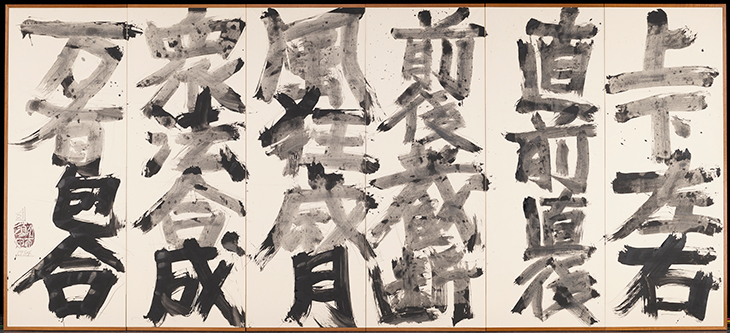 上下左右
直前直後
前後截断
風狂歳月
衆法合成
万有包合